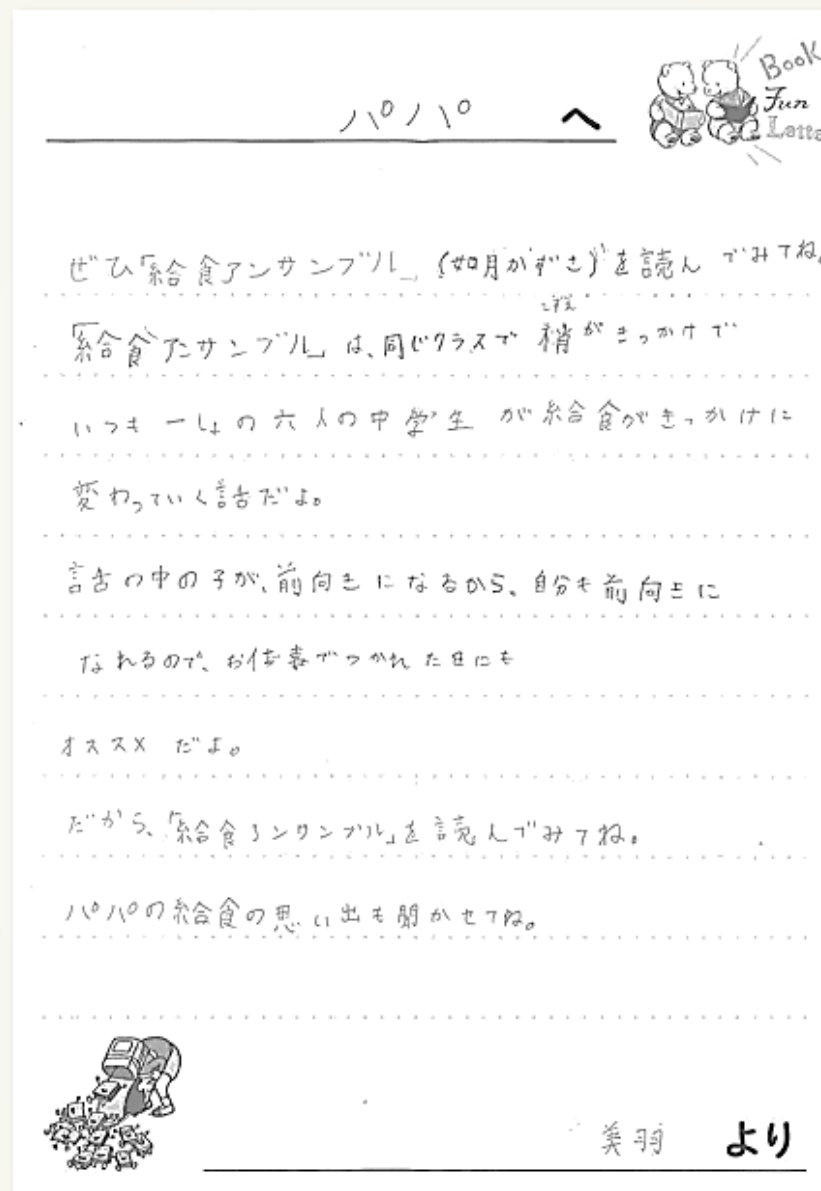 パパ へ
Book
Fun
ぜひ「給食アンサンブル」(如月かずさ)を読んでみてね。
こずえ
「給食アンサンブル」は、同じクラスで梢がきっかけで
いつも一しょの六人の中学生が給食がきっかけに
変わっていく話だよ。
話の中の子が、前向きになるから、自分も前向きに
なれるので、お仕事でつかれた日にも
オススメだよ。
だから、「給食アンサンブル」を読んでみてね。
パパの給食の思い出も聞かせてね。
美羽 より